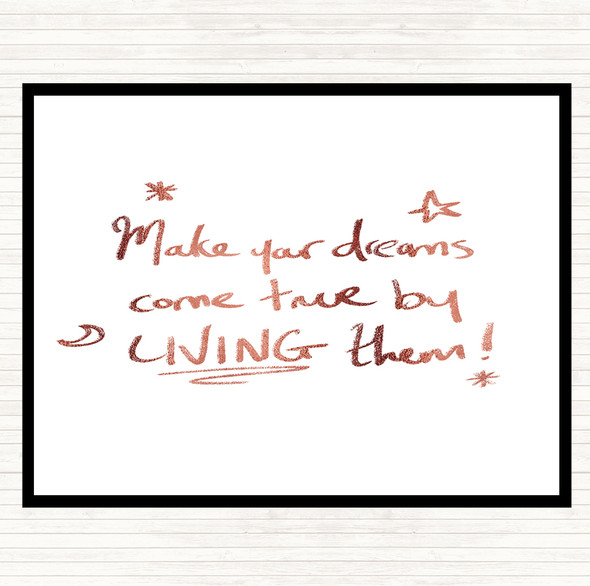 Make your dreams
come true by
LIVING them!